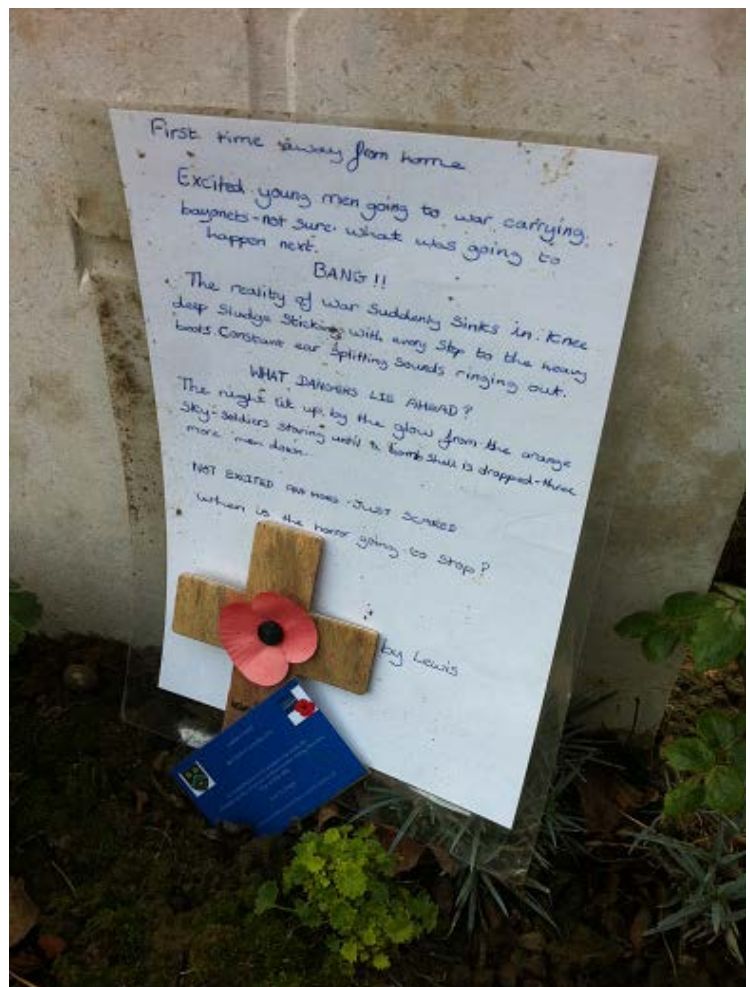 First time away from home
Excited young men going to war carrying
bayonets - not sure what was going to
happen next.
BANG!!
The reality of war suddenly sinks in. Knee
deep sludge sticking with every step to the heavy
boots. Constant ear splitting sounds ringing out.
WHAT DANGERS LIE AHEAD?
The night lit up by the glow from the orange
sky - soldiers staring until a bomb shell is dropped - three
more men down.
NOT EXCITED ANYMORE - JUST SCARED
When is the horror going to stop?
by Lewis